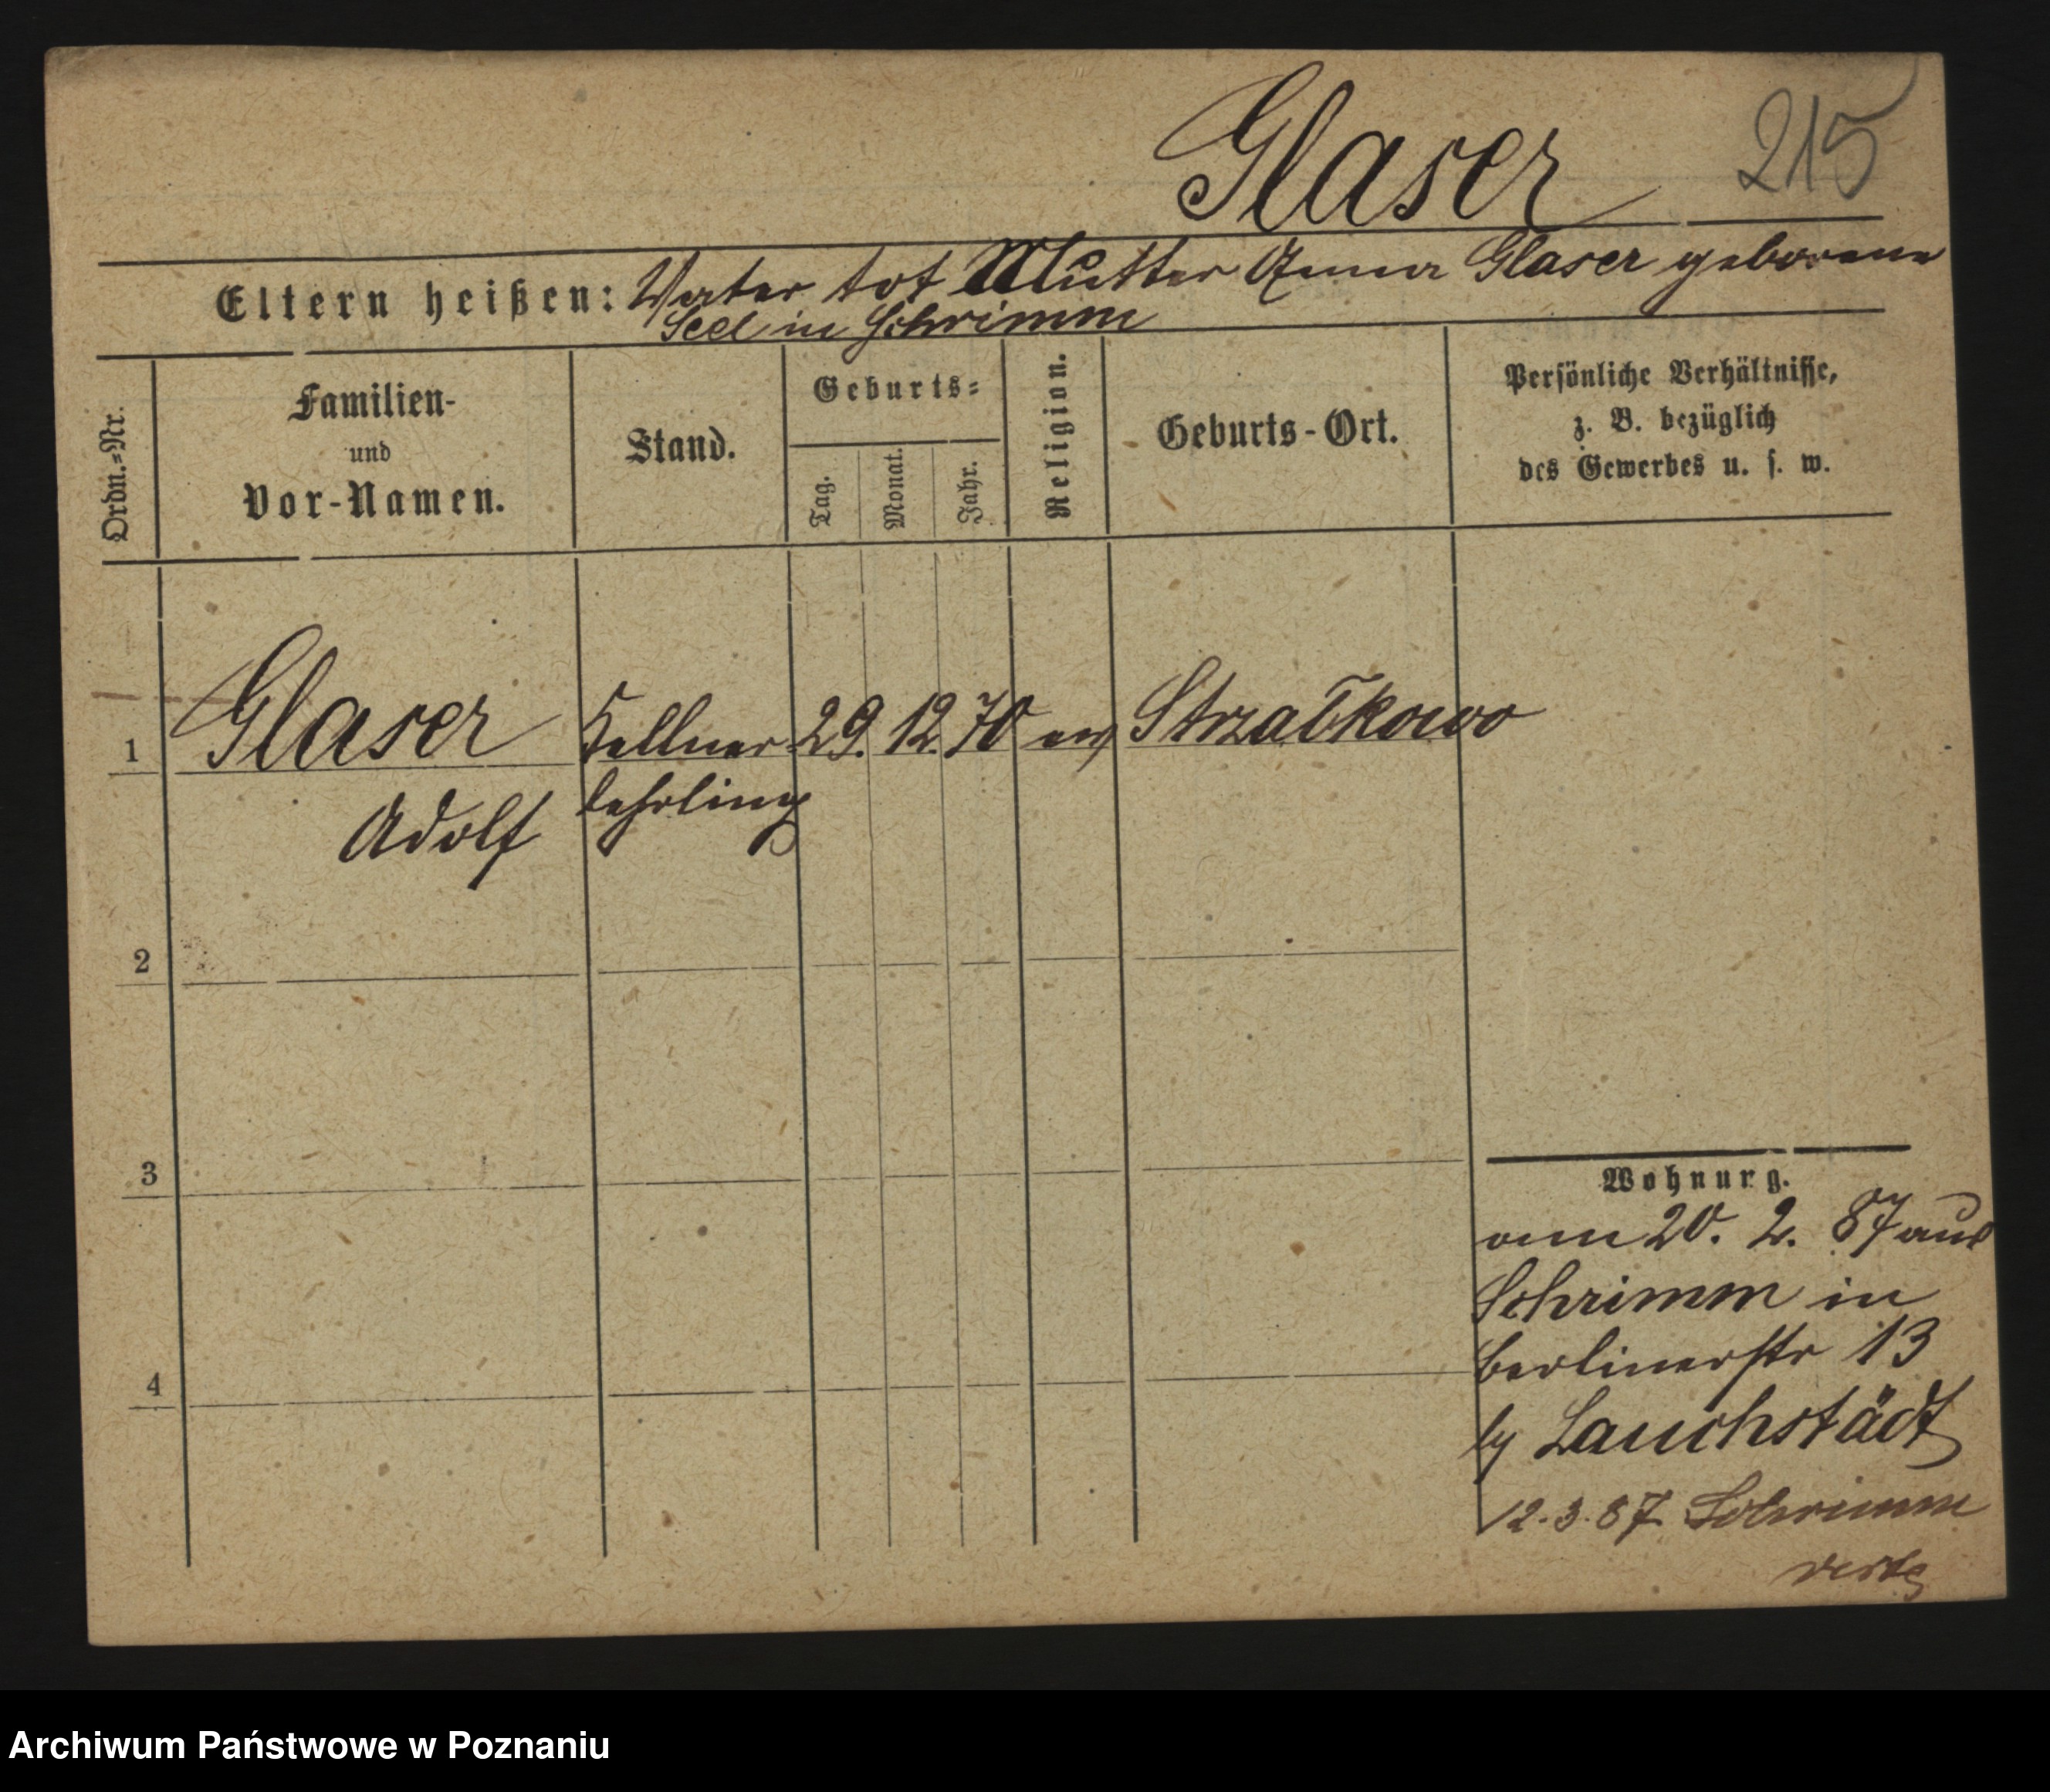 Glaser 215
Eltern heißen: Vater tot Mutter Anna Glaser geborene
Seel in Schrimm
Ordn.=Nr.
Familien-
und
Vor-Namen.
Stand.
Geburts=
Tag.
Monat.
Jahr.
Religion.
Geburts-Ort.
Persönliche Verhältnisse,
z. B. bezüglich
des Gewerbes u. s. w.
1 Glaser Kellner 29. 12. 70 ev Strzałkowo
Adolf lehrling
2
3
4
Wohnung.
vom 20. 2. 87 aus
Schrimm in
Berlinerstr 13
by Lauchstädt
12.3.87 Schrimm
Archiwum Państwowe w Poznaniu